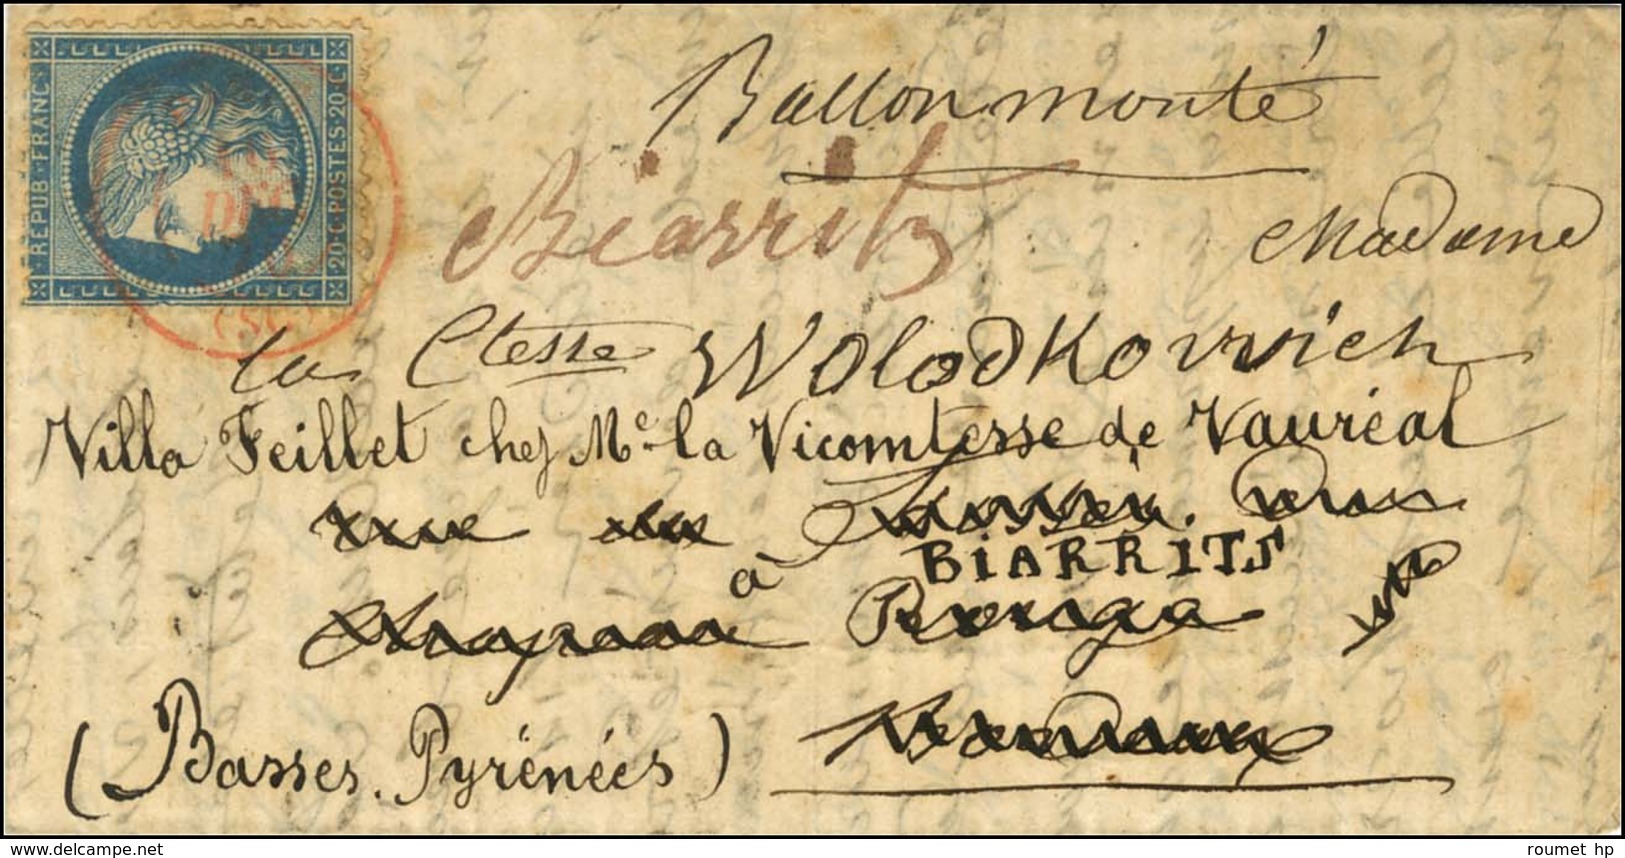 REPUB·FRANC
20·C·POSTES·20·C
(SC)
Ballon monté
Biarritz
Madame
la Ctesse Wolodkowich
Villa Feillet chez Me la Vicomtesse de Vauréal
à BIARRITS
Rouge
(Basses. Pyrénées)
Bordeaux
www.delcampe.net
roumet hp